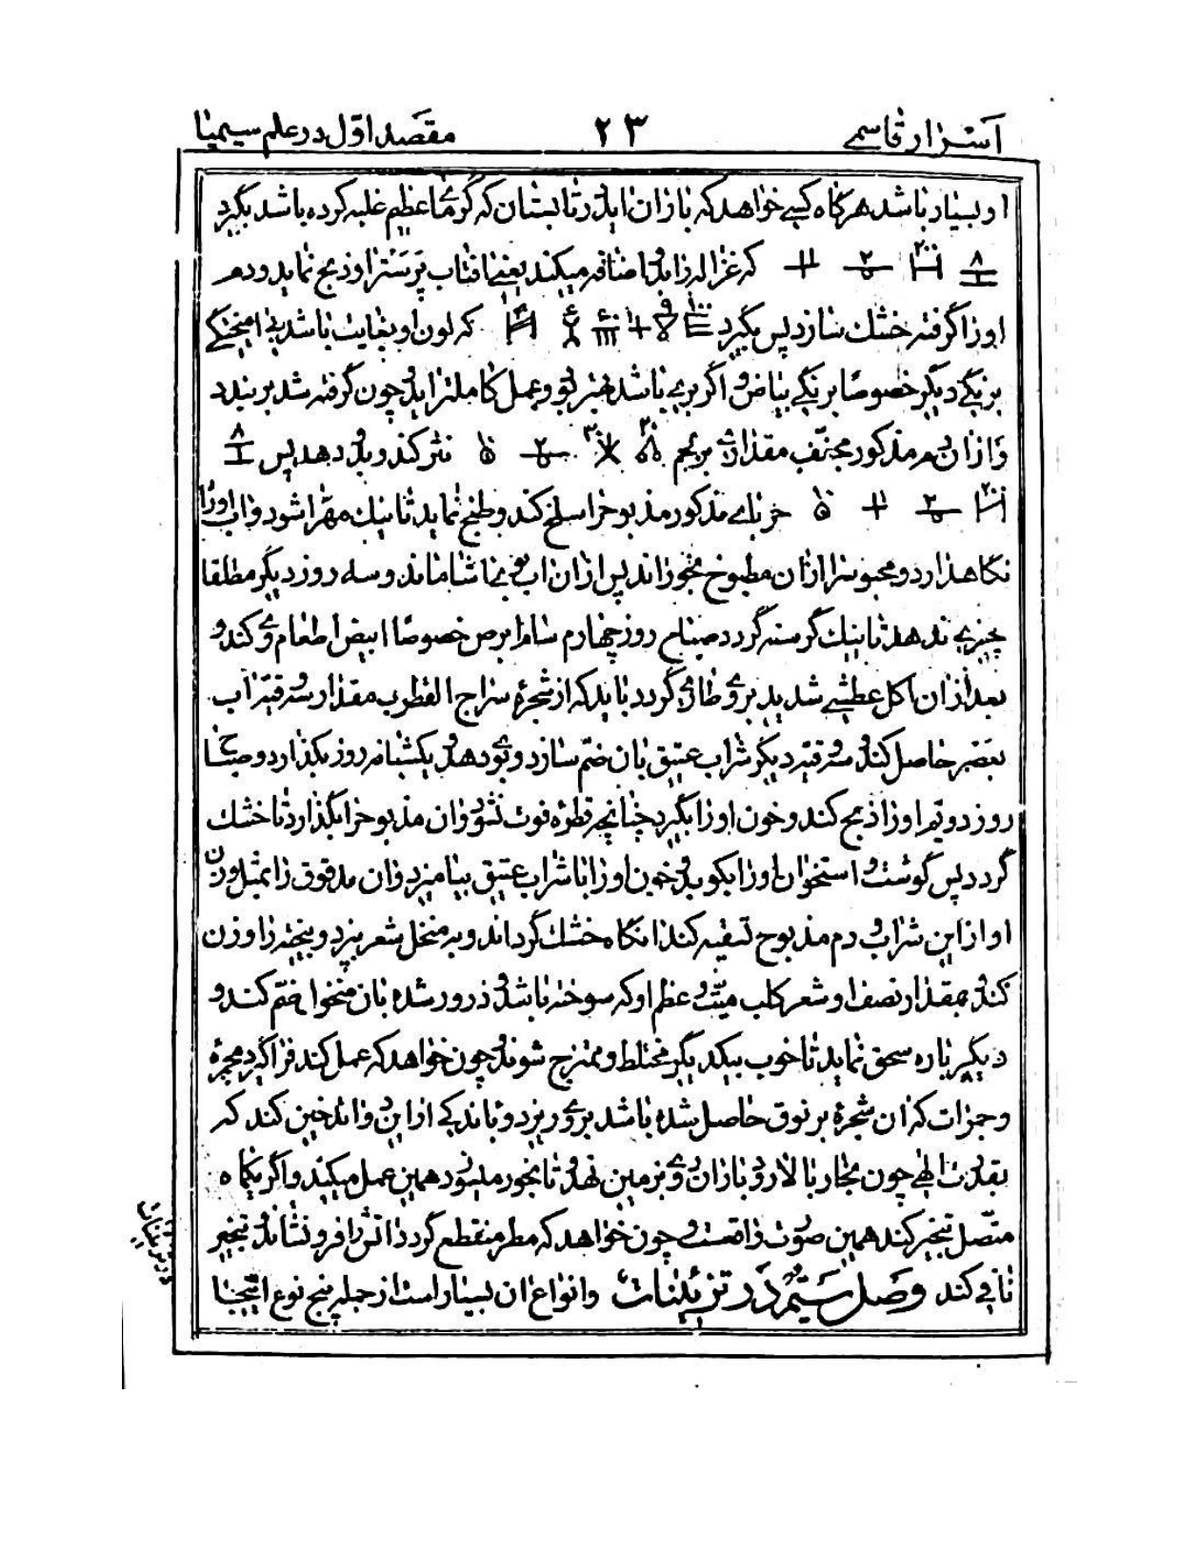 اسرار قاسمی ۲۳ مقصد اول در علم سیمیا
او بسیار باشد هرگاه کسی خواهد که باران اید در تابستان که گرمای عظیم غلبه کرده باشد بگیرد
که غزاله را بدو اضافه میکنند یعنی افتاب پرست را و ذبح نماید و دم
او را گرفته خشک سازد پس بگیرد که لون او بغایت باشد بی امیختگی
برنگی دیگر خصوصا برنگ بیاض و اگر بری باشد بهتر بود و عمل کاملتر اید و چون گرفته شد بربندد
و از ان دم مذکور مجفف مقداری بر نثر کند و بدو دهد پس
حربای مذکور مذبوح را سلخ کند و طبخ نماید تا نیک مهرا شود و اب او را
نگاهدارد و محبوس را از ان مطبوخ بخوراند پس از ان اب بوی بیاشاماند و سه روز دیگر مطلقا
چیزی ندهد تا نیک گرسنه گردد صباح روز چهارم سام ابرص خصوصا ابیض اطعام وی کند و
بعد از ان اکل عطشی شدید بر وی طاری گردد باید که از شجرهٔ سراج القطرب مقدار سه وقیه اب
بعصر حاصل کند و سه وقیه دیگر شراب عتیق بان ضم سازد و بوی دهد و یکشبانه روز بگذارد و صباح
روز دویم او را ذبح کند و خون او را بگیرد چنانچه قطرهٔ فوت نشود و ان مذبوح را بگذارد تا خشک
گردد پس گوشت و استخوان او را بکوبد و خون او را با شراب عتیق بیامیزد و ان مدقوق را بمثل وزن
او از این شراب و دم مذبوح تسقیه کند انگاه خشک گرداند و به منخل شعر بیزد و بیخته را وزن
کند و بمقدار نصف او شعر کلب میت و عظم او که سوخته باشد و ذرور شده بان منخول ضم کند و
دیگر باره سحق نماید تا خوب بیکدیگر مختلط و ممتزج شوند و چون خواهد که عمل کند فراگیرد مجمرهٔ
و جمرات که ان شجرهٔ برنوق حاصل شده باشد بر وی ریزد و باندکی از این دوا تدخین کند که
بقدرت الهی چون بخار بالا رود باران روی بزمین نهد و تا بخور میشود همین عمل میکند و اگر یکماه
متصل تبخیر کند همین صورت واقعست و چون خواهد که مطر منقطع گردد اتش را فرو نشاند و تبخیر
نافی کند وصل سیم در تزئینات و انواع ان بسیار است از جمله پنج نوع اینجا